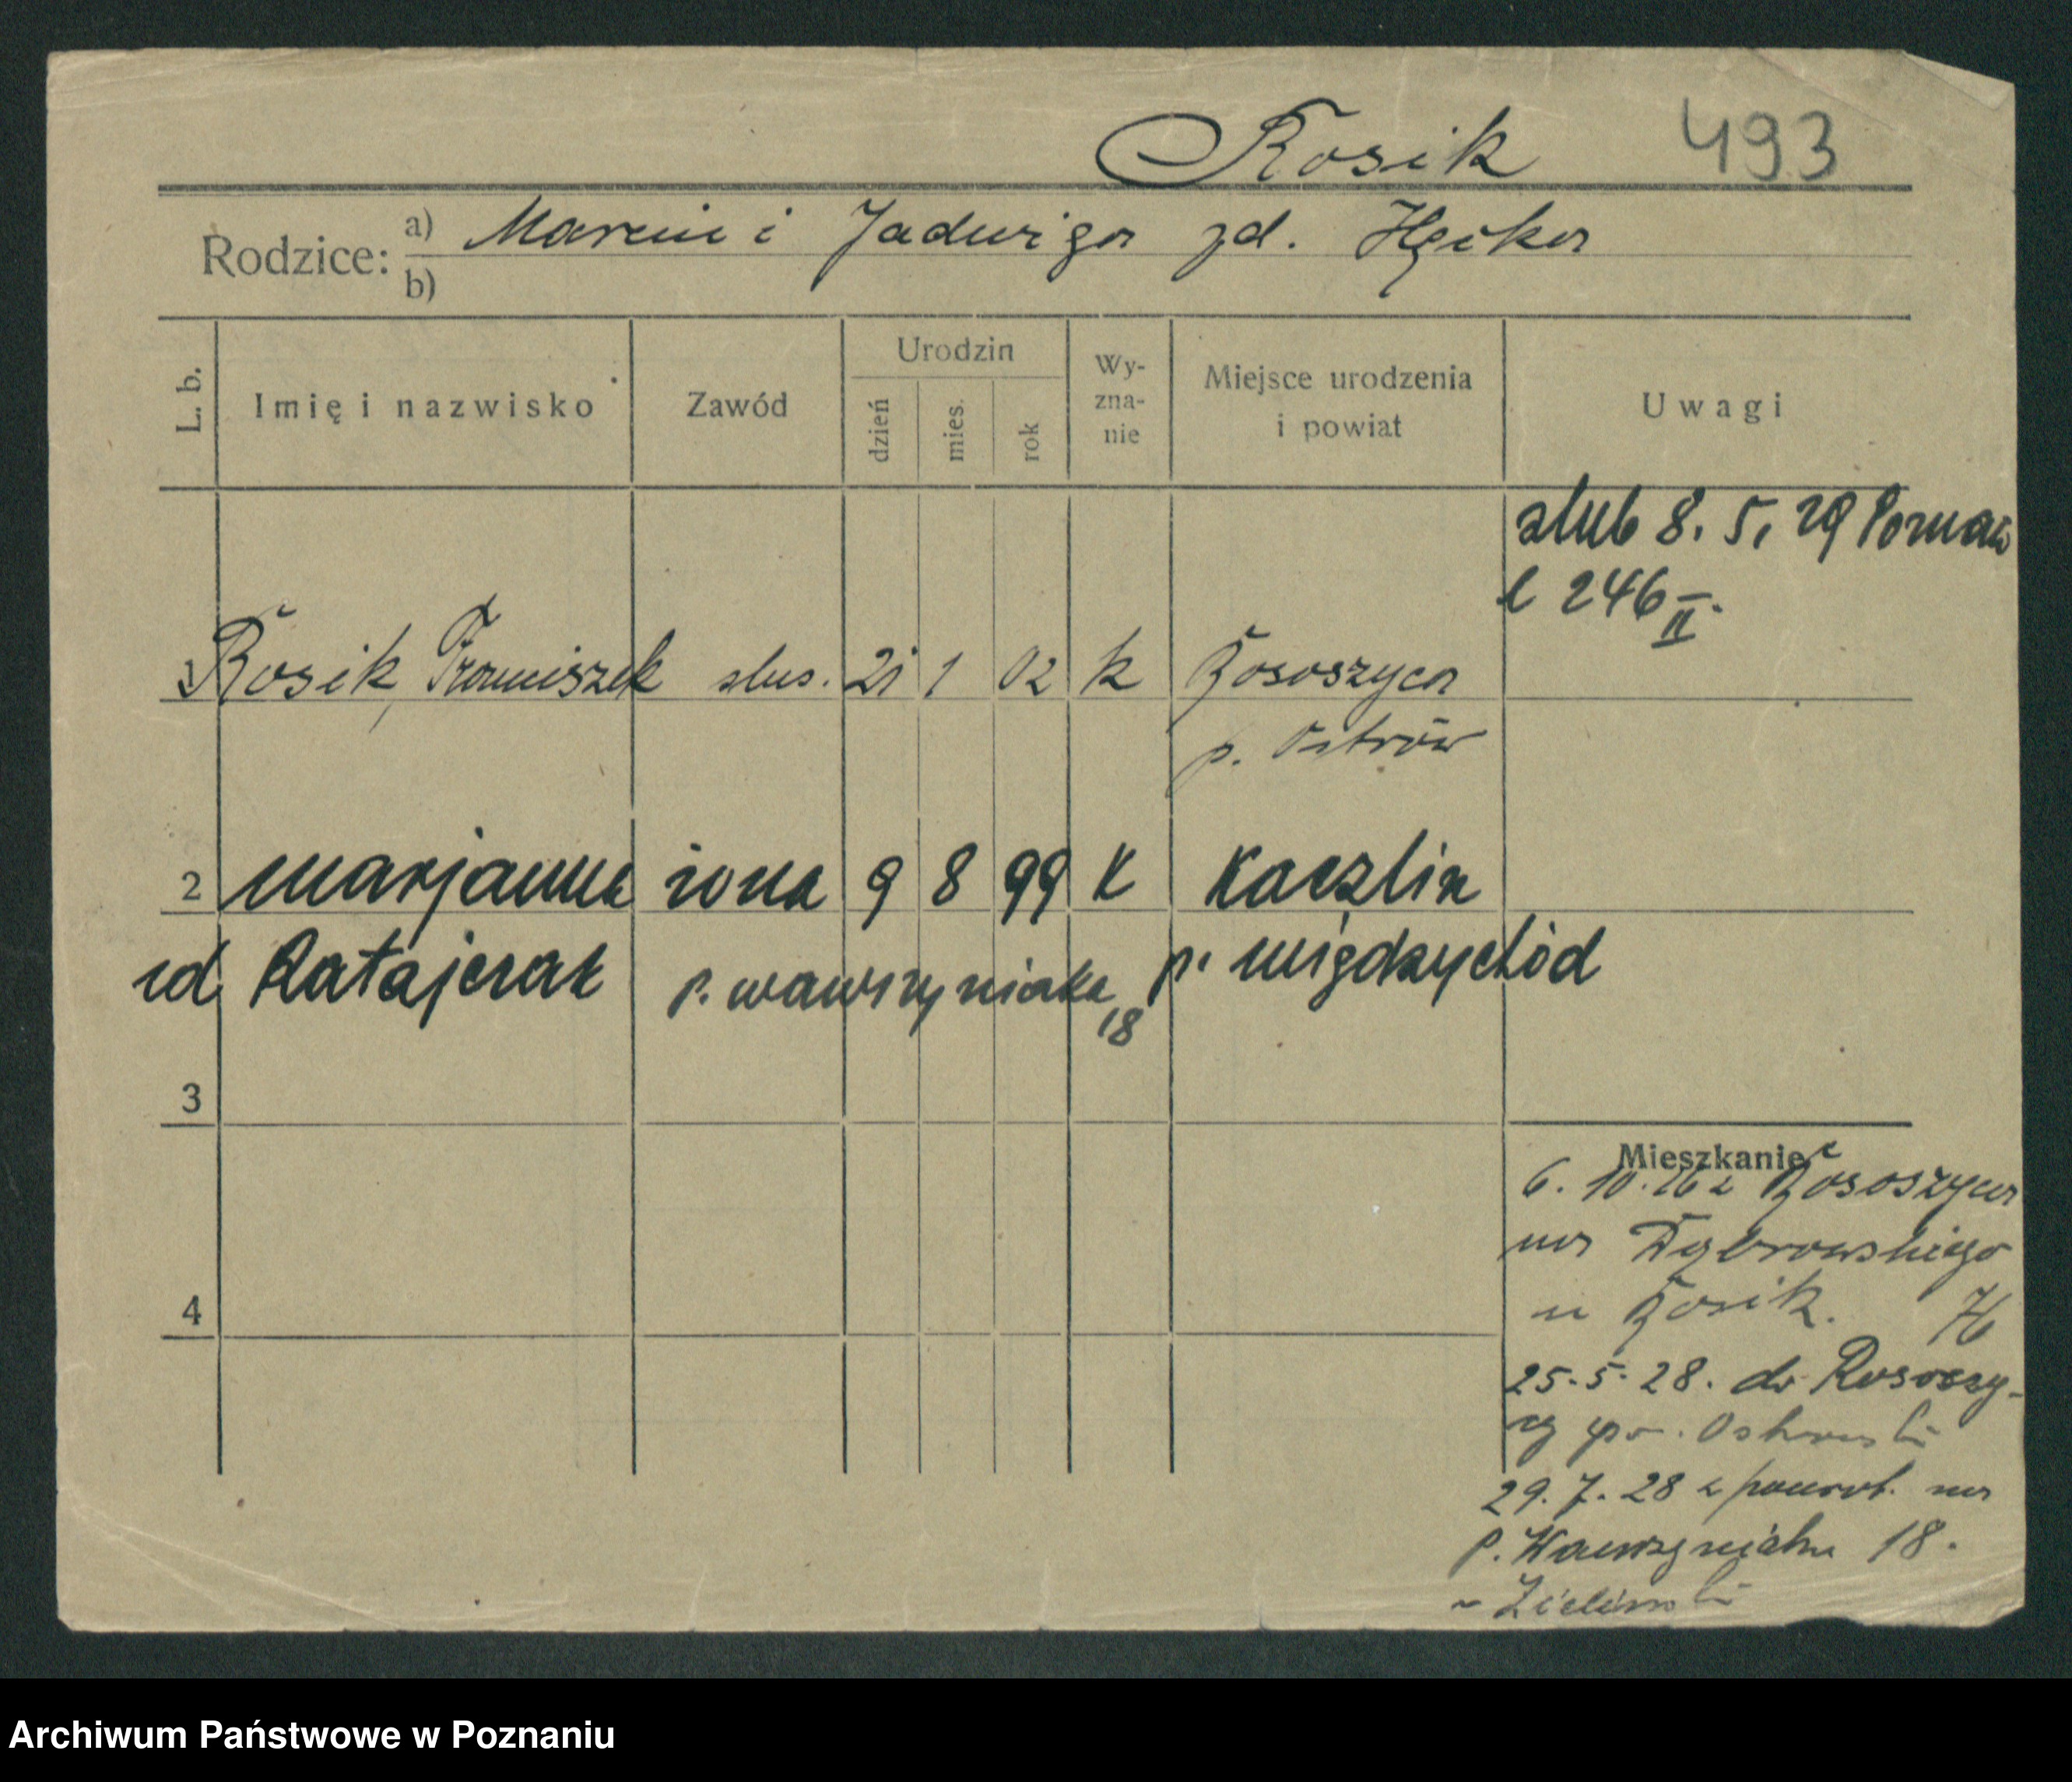 Rosik 493
Rodzice: a) Marcin i Jadwiga zd.
b)
L. b. Imię i nazwisko Zawód Urodzin dzień mies. rok Wy-zna-nie Miejsce urodzenia i powiat Uwagi
ślub 8. 5. 29 Poznań
l 246 II.
1 Rosik, Franciszek ślus. 21 1 02 k Rososzyca
p. Ostrów
2 Marjanna żona 9 8 99 k Kaczlin
zd Ratajczak p. Wawrzyniaka 18 p. Międzychód
3
Mieszkanie
6. 10. 26 z Rososzyca
na Dąbrowskiego
4 u Rosik.
25. 5. 28. do Rososzy-
cy
29. 7. 28 z powrot. na
p. Wawrzyniaka 18.
Archiwum Państwowe w Poznaniu